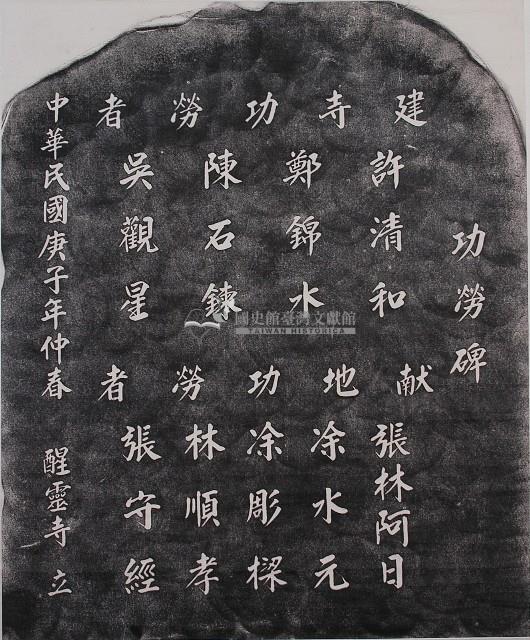 功勞碑
建寺功勞者
許清和
鄭錦水
陳石鍊
吳觀星
献地功勞者
張林阿日
凃水元
凃彫樑
林順孝
張守經
中華民國庚子年仲春 醒靈寺 立
國史館臺灣文獻館
TAIWAN HISTORICA